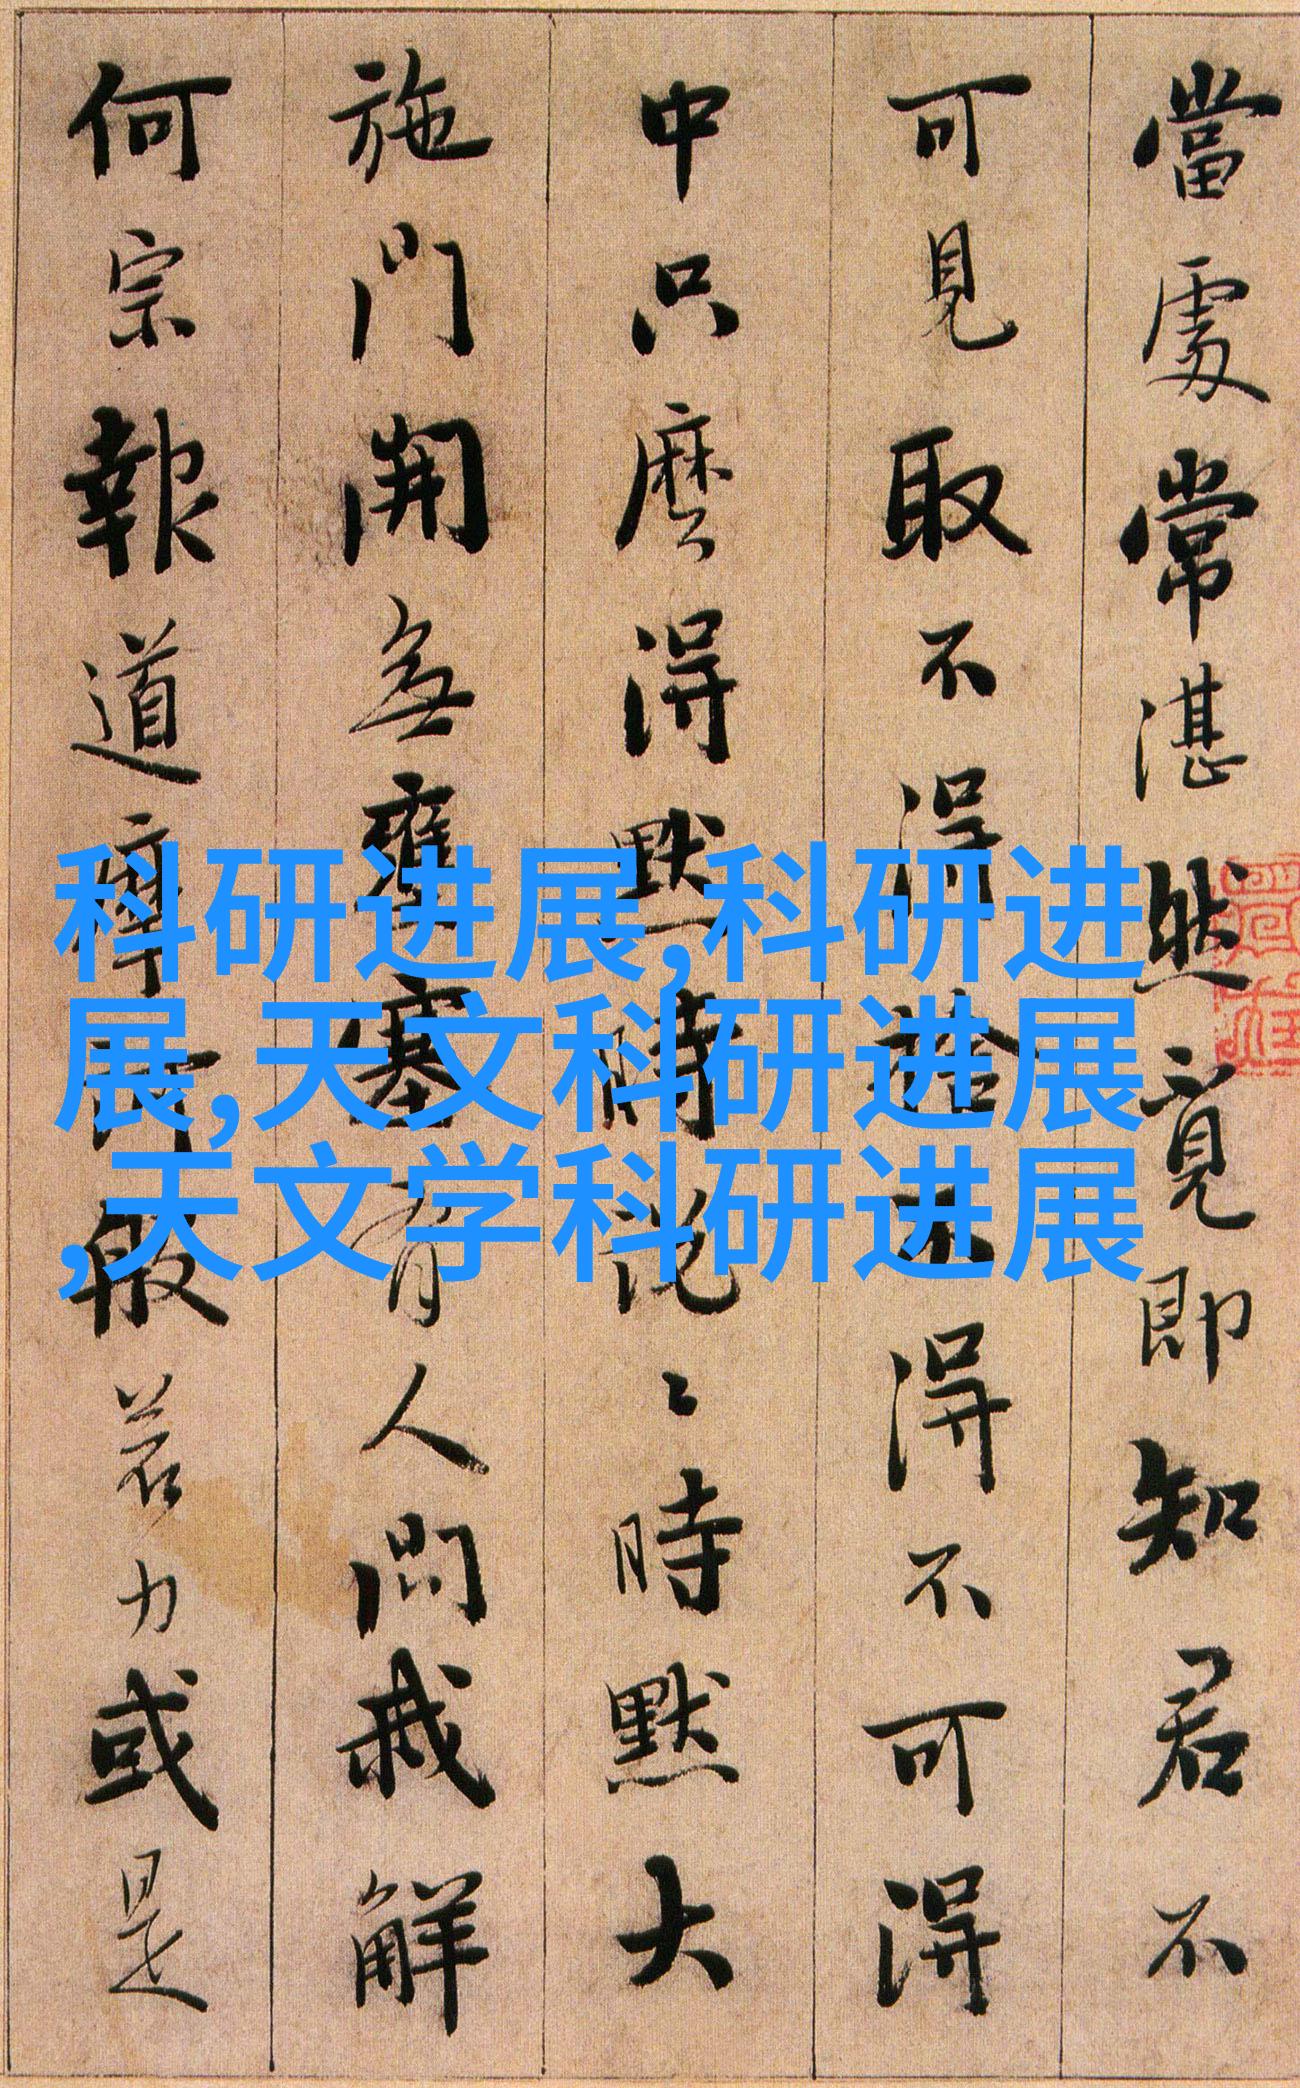 當處常湛然覓即知君不
可見取不得捨不得不可得
中只麼得默時說〻時默大
施門開無壅塞有人問我解
何宗報道摩訶般若力或是
科研进展,科研进
展,天文科研进展
,天文学科研进展